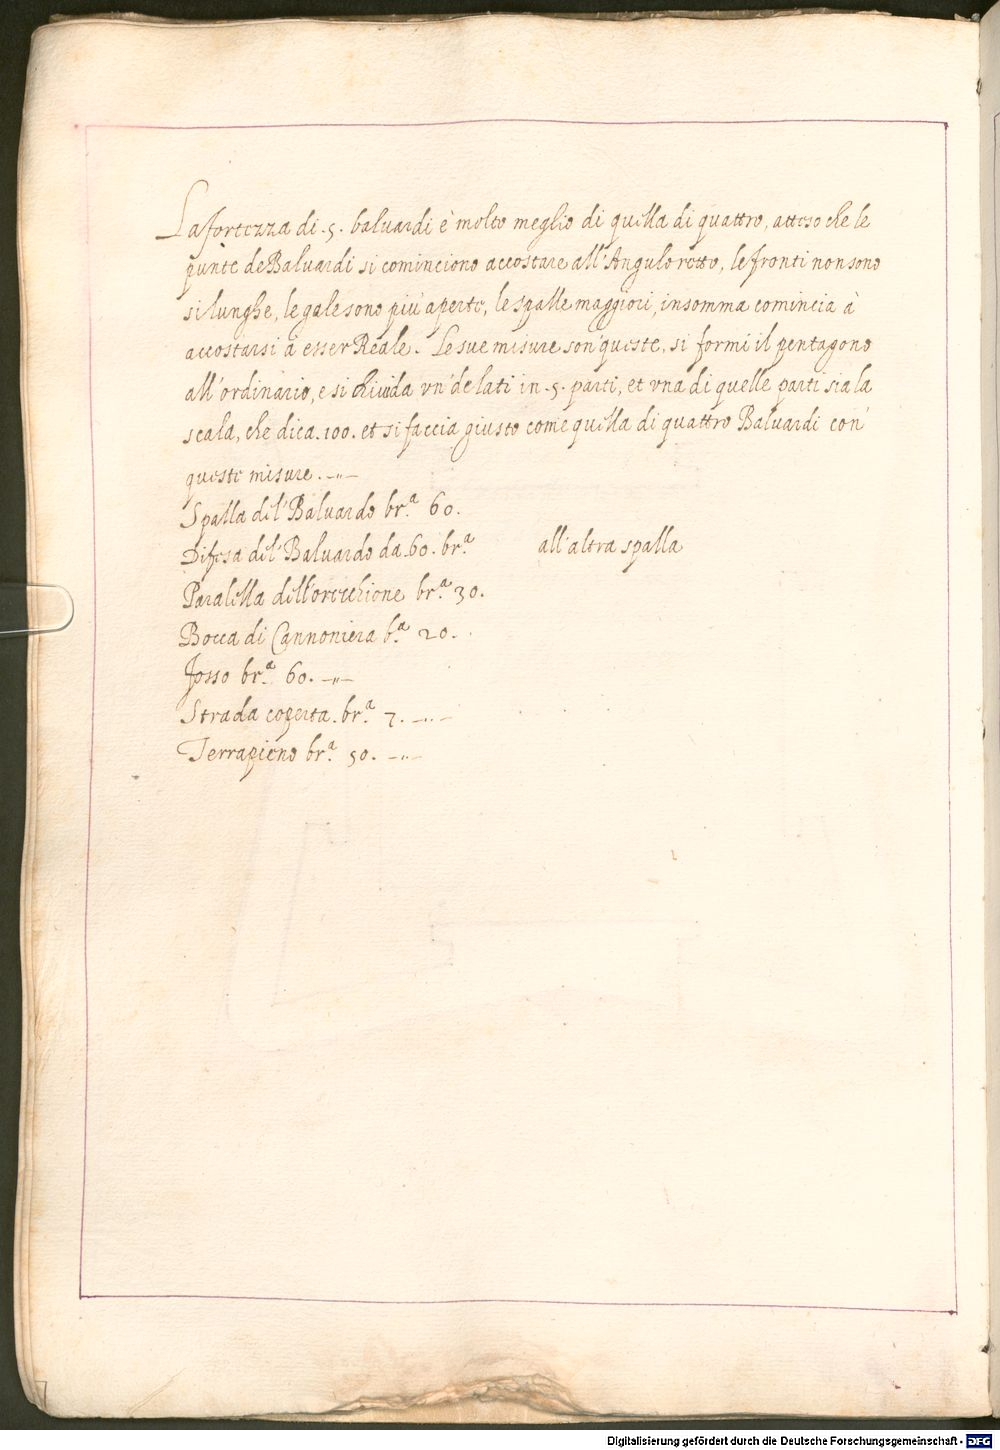 La fortezza di .5. baluardi è molto meglio di quella di quattro, atteso che le
punte de Baluardi si cominciono accostare all'Angulo retto, le fronti non sono
si lunghe, le gole sono più aperte, le spalle maggiori, insomma comincia à
accostarsi à esser Reale. Le sue misure son' queste, si formi il pentagono
all'ordinario, e si divida vn' de lati in .5. parti, et vna di quelle parti sia la
scala, che dica .100. et si faccia giusto come quella di quattro Baluardi con'
queste misure. -"-
Spalla del' Baluardo br.ᵃ 60.
Difesa del' Baluardo da .60. br.ᵃ all'altra spalla
Paralella dell'orecchione br.ᵃ 30.
Bocca di Cannoniera b.ᵃ 20.
fosso br.ᵃ 60. -"-
Strada coperta . br.ᵃ 7. -"-
Terrapieno br.ᵃ 50. -"-
Digitalisierung gefördert durch die Deutsche Forschungsgemeinschaft - DFG